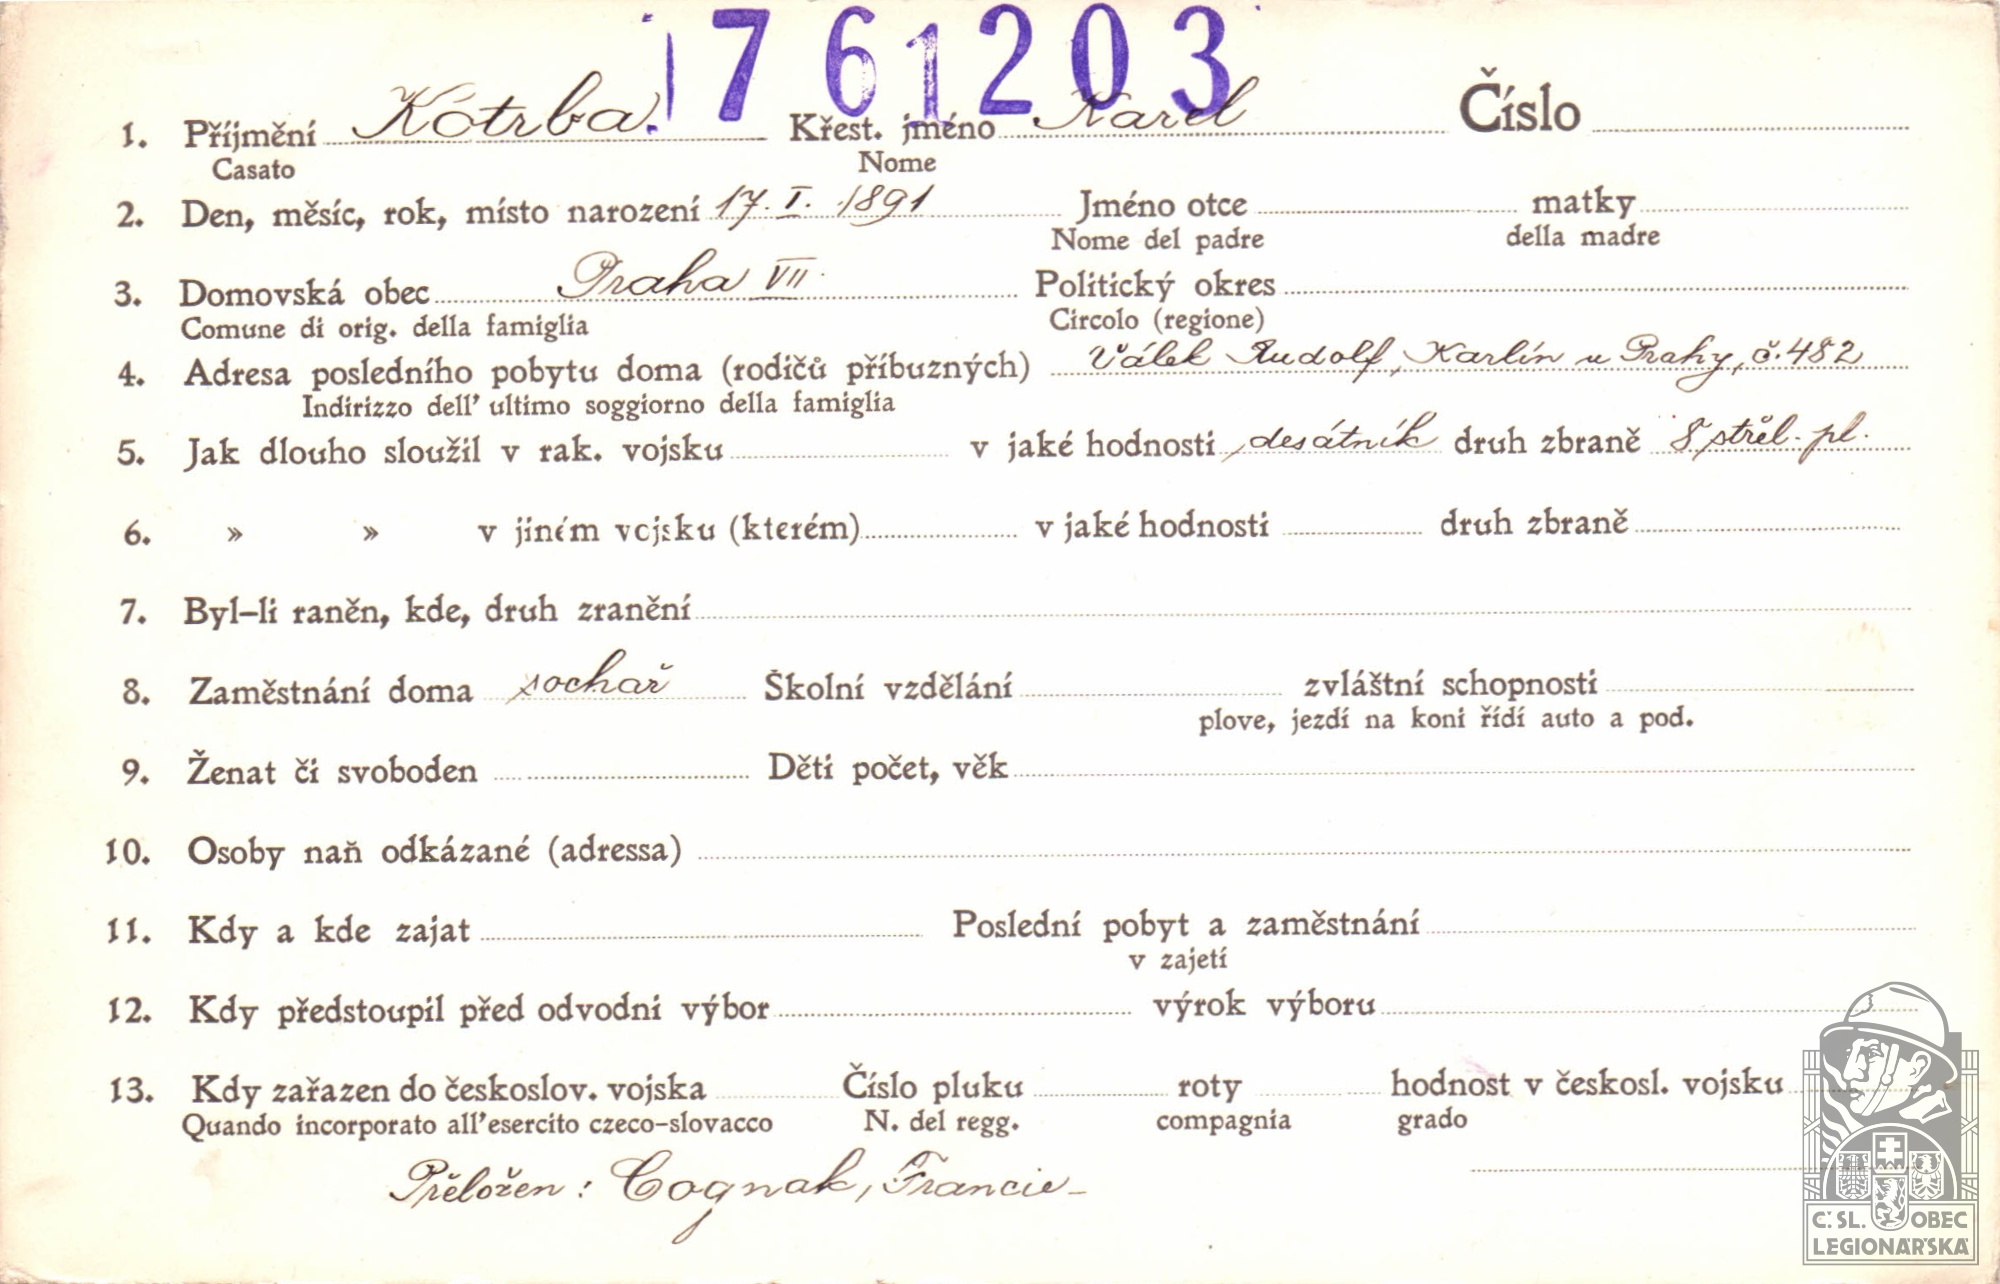 1 7 6 1 2 0 3
1. Příjmení Kotrba. Křest. jméno Karel Číslo
Casato Nome
2. Den, měsíc, rok, místo narození 17. I. 1891 Jméno otce matky
Nome del padre della madre
3. Domovská obec Praha VII. Politický okres
Comune di orig. della famiglia Circolo (regione)
4. Adresa posledního pobytu doma (rodičů příbuzných) Válek Rudolf, Karlín u Prahy, č. 482
Indirizzo dell' ultimo soggiorno della famiglia
5. Jak dlouho sloužil v rak. vojsku v jaké hodnosti desátník druh zbraně 8 střel. pl.
6. » » v jiném vojsku (kterém) v jaké hodnosti druh zbraně
7. Byl-li raněn, kde, druh zranění
8. Zaměstnání doma sochař Školní vzdělání zvláštní schopnosti
plove, jezdí na koni řídí auto a pod.
9. Ženat či svoboden Děti počet, věk
10. Osoby naň odkázané (adressa)
11. Kdy a kde zajat Poslední pobyt a zaměstnání
v zajetí
12. Kdy předstoupil před odvodní výbor výrok výboru
13. Kdy zařazen do českoslov. vojska Číslo pluku roty hodnost v českosl. vojsku
Quando incorporato all'esercito czeco-slovacco N. del regg. compagnia grado
Přeložen: Cognak, Francie-
Č. SL. OBEC
LEGIONÁŘSKÁ